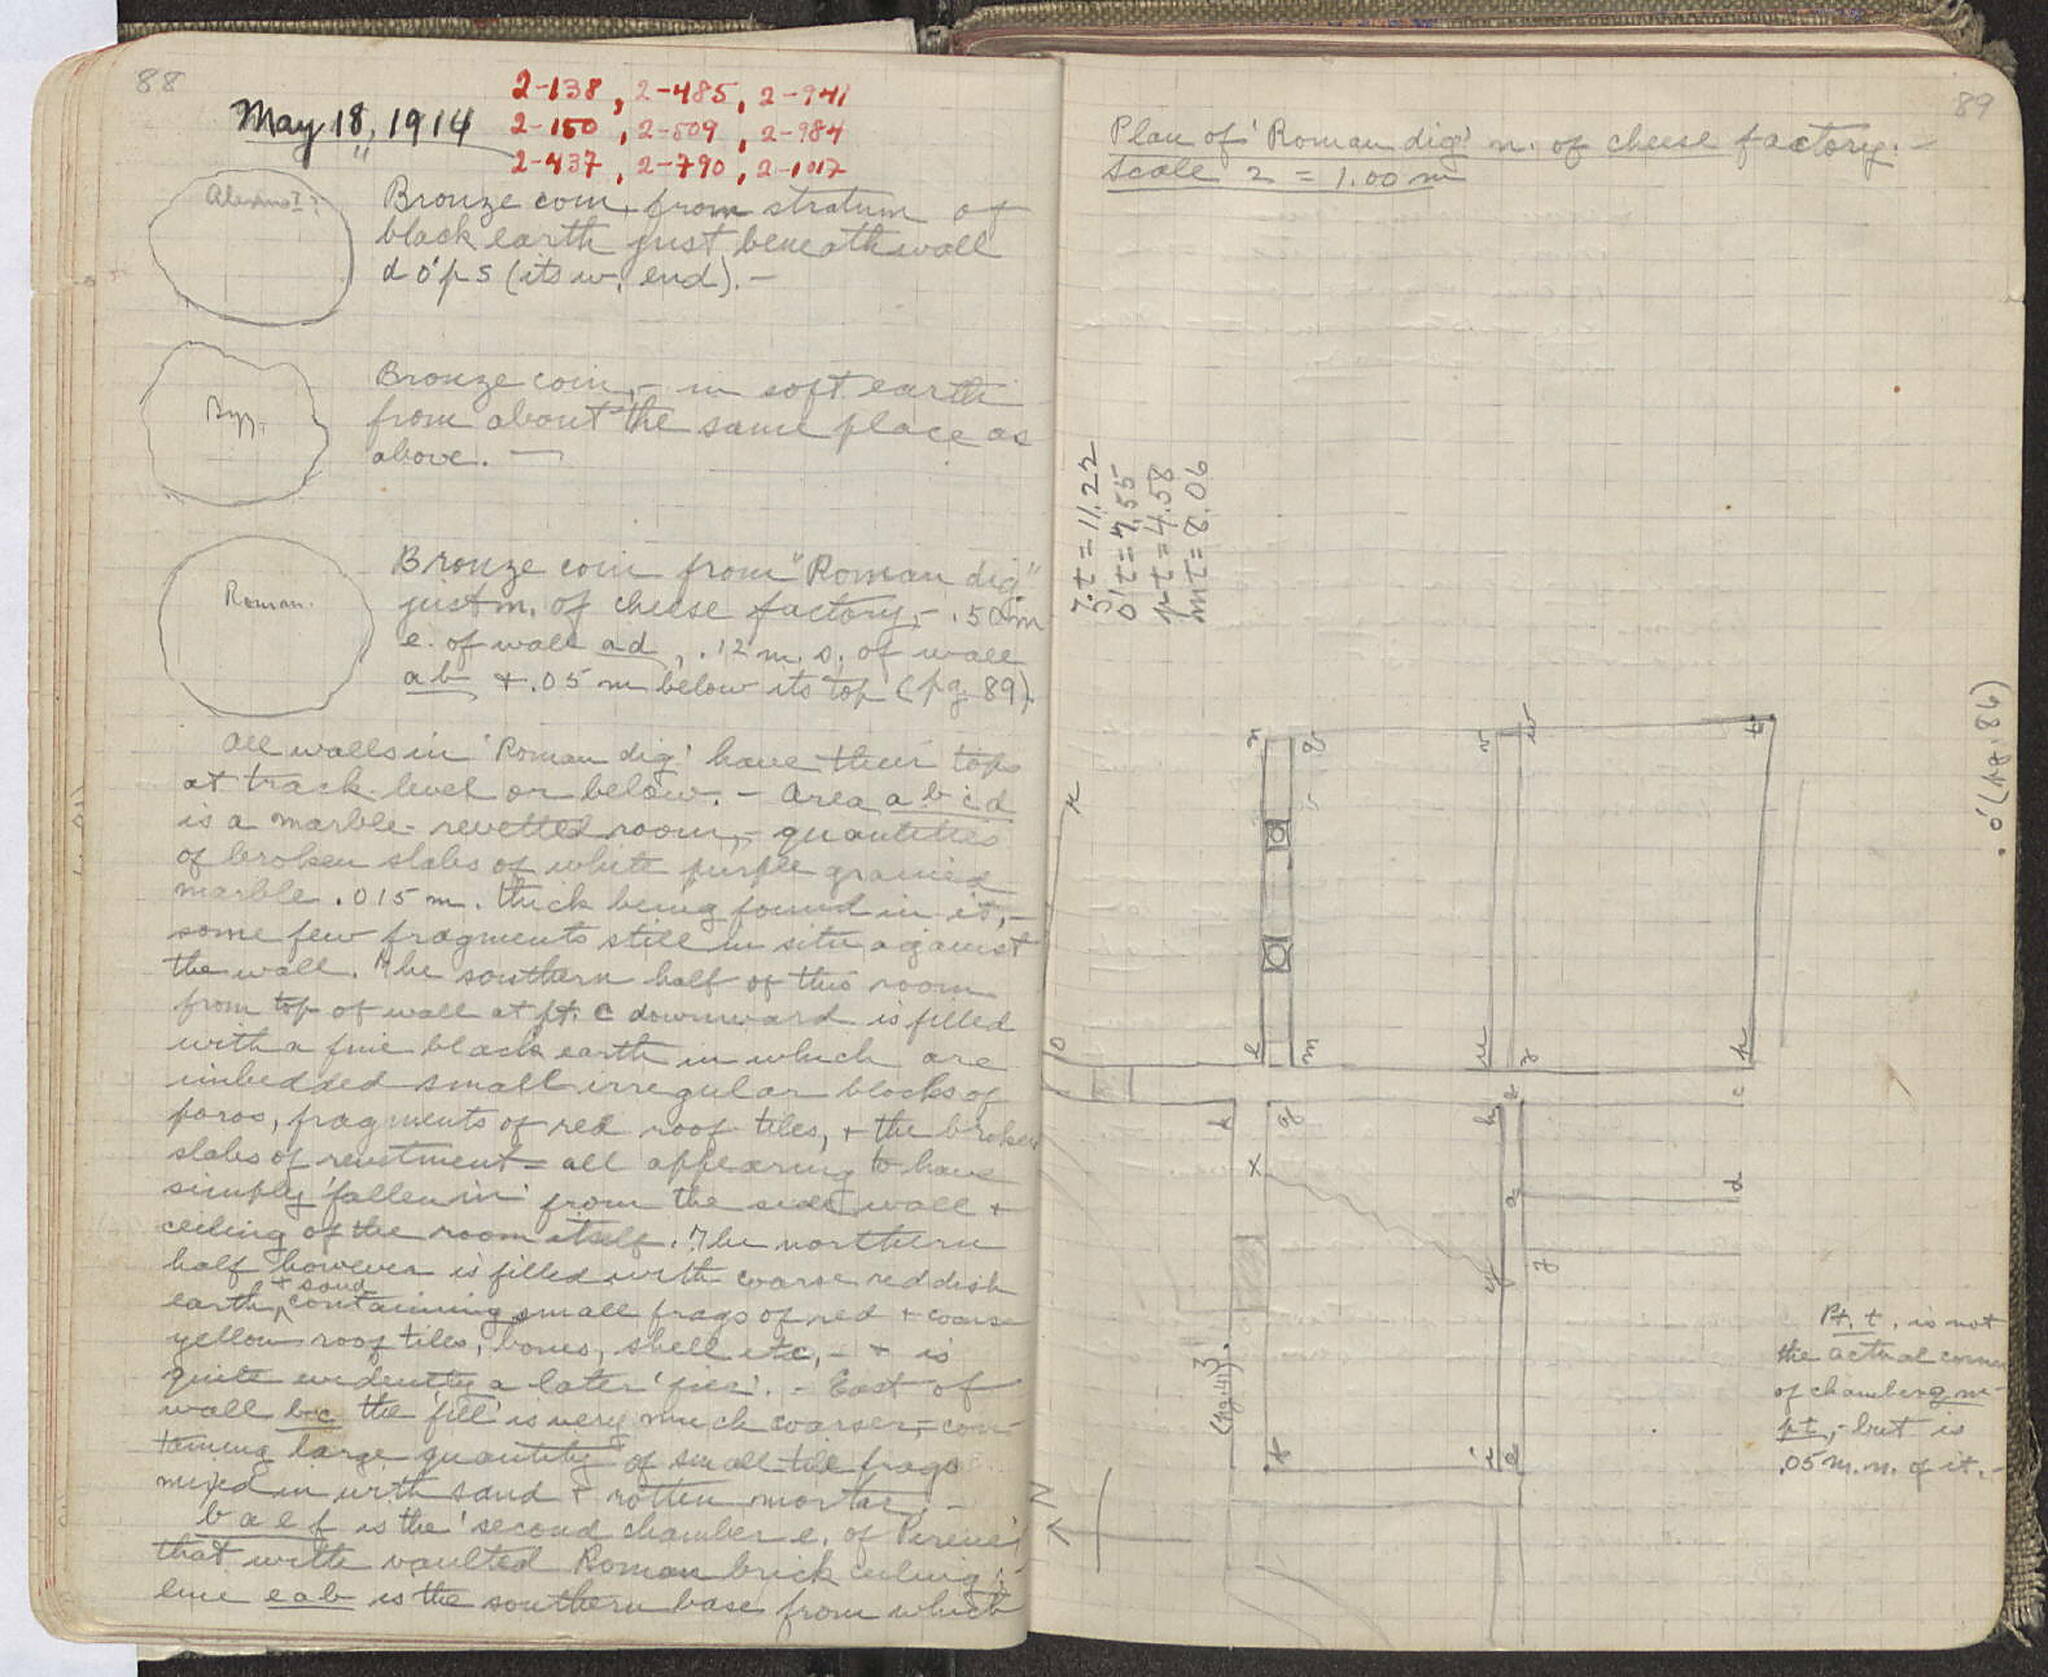 88
May 18, 1914
2-138, 2-485, 2-941
2-150, 2-509, 2-984
2-437, 2-790, 2-1017
Bronze coin, from stratum of
black earth just beneath wall
d o'p s (its w. end). —
Byz.
Bronze coin, — in soft earth
from about the same place as
above. —
Roman.
Bronze coin from "Roman dig"
just n. of cheese factory, — .50 m
e. of wall ad, .12 m. s. of wall
ab + .05 m below its top (pg. 89).
All walls in 'Roman dig' have their tops
at track level or below. — Area a b c d
is a marble-revetted room, — quantities
of broken slabs of white purple grained
marble .015 m. thick being found in it, —
some few fragments still in situ against
the wall. The southern half of this room
from top of wall at pt. c downward is filled
with a fine black earth in which are
imbedded small irregular blocks of
poros, fragments of red roof tiles, + the broken
slabs of revetment = all appearing to have
simply 'fallen in' from the side wall +
ceiling of the room itself. The northern
half however is filled with coarse reddish
earth + sand containing small frags of red + coarse
yellow roof tiles, bones, shell etc, — + is
quite evidently a later 'fill'. — East of
wall bc the 'fill' is very much coarser, — con-
taining large quantity of small tile frags
mixed in with sand + rotten mortar. —
b a e f is the 'second chamber e. of Pirene'
that with vaulted Roman brick ceiling; —
line eab is the southern base from which
89
Plan of 'Roman dig' n. of cheese factory. —
Scale 2 = 1.00 m
t = 11.22
o't = 7.55
pt = 4.58
mt = 8.06
o' (pg. 86)
n
q
v
w
t
r
o
l
m
u
z
p
k
g
h
c
x
a
d
y
z
(pg 41) 3'
i
e
N
Pt. t. is not
the actual corner
of chamber q m
p t, — but is
.05 m. n. of it. —